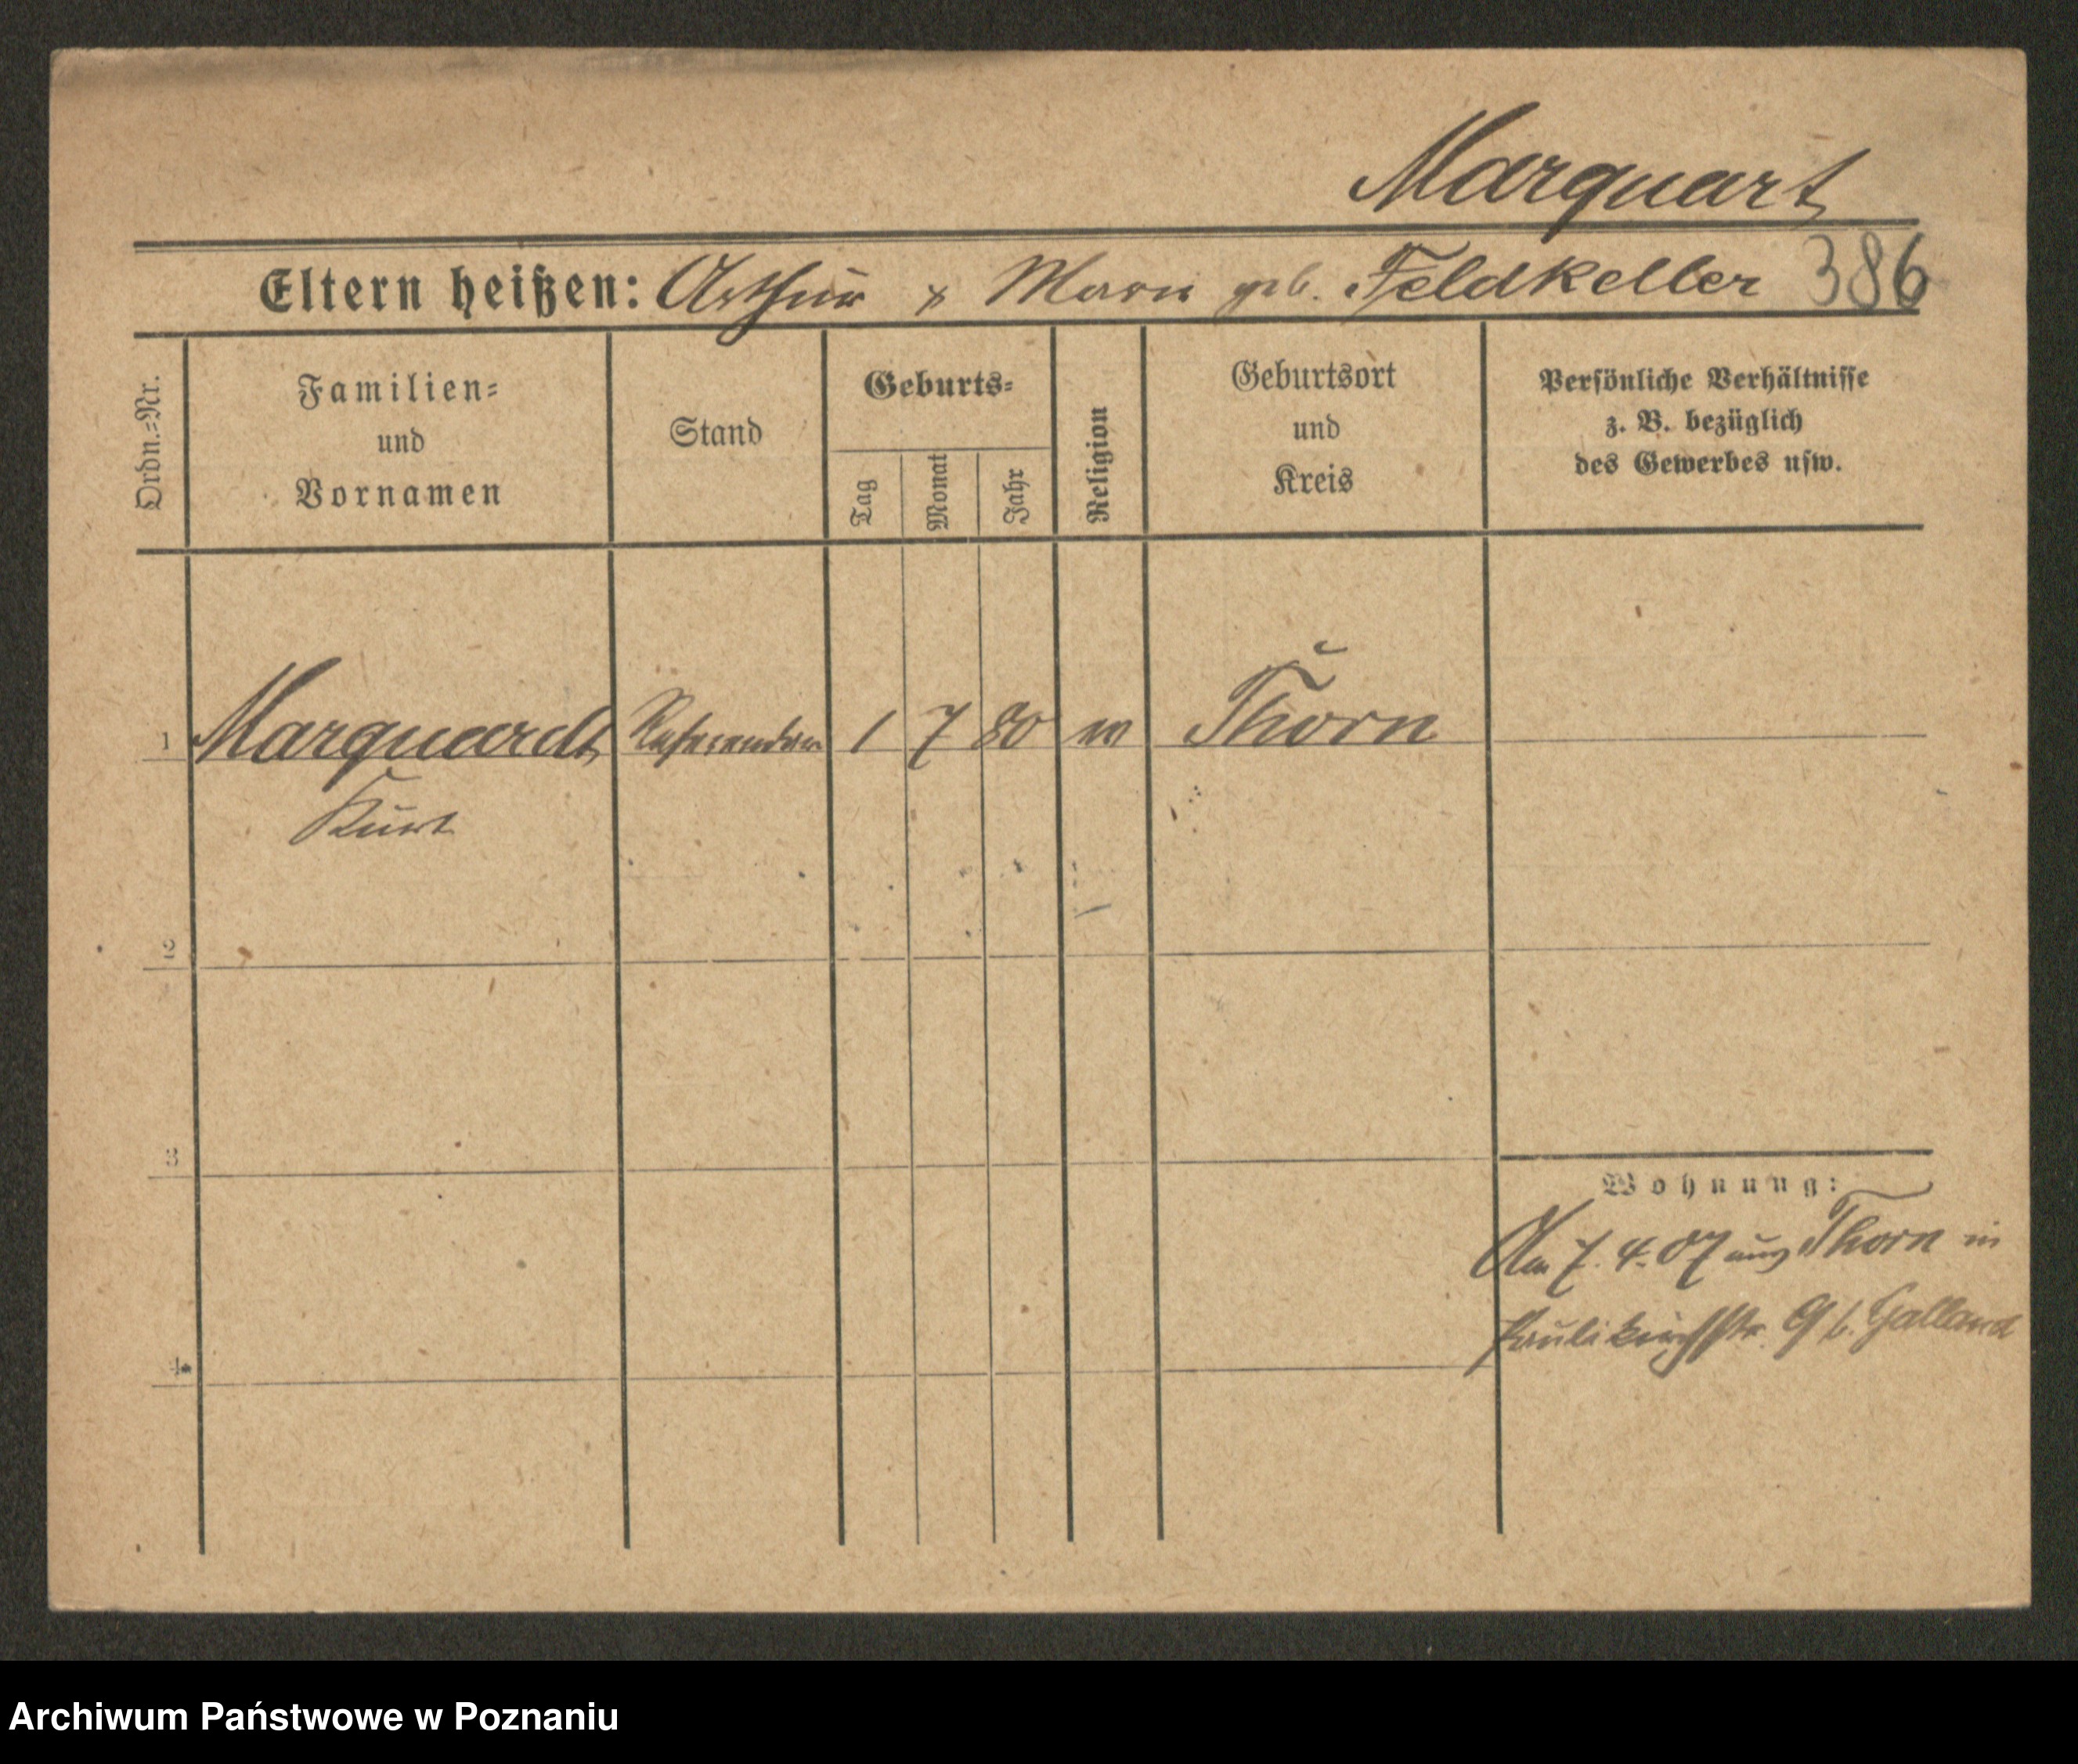 Marquart
Eltern heißen: Arthur & Marie geb. Feldkeller 386
Ordn.=Nr.
Familien=
und
Vornamen
Stand
Geburts=
Tag
Monat
Jahr
Religion
Geburtsort
und
Kreis
Persönliche Verhältnisse
z. B. bezüglich
des Gewerbes usw.
1 Marquardt Referendar 1 7 80 Thorn
Kurt
2
3
Wohnung:
Am 7. 4. 07 aus Thorn in
Paulikirchstr. 9 b. Galland
4
Archiwum Państwowe w Poznaniu